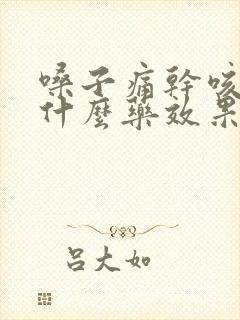 嗓子痛幹咳
什麼藥效果
呂大如